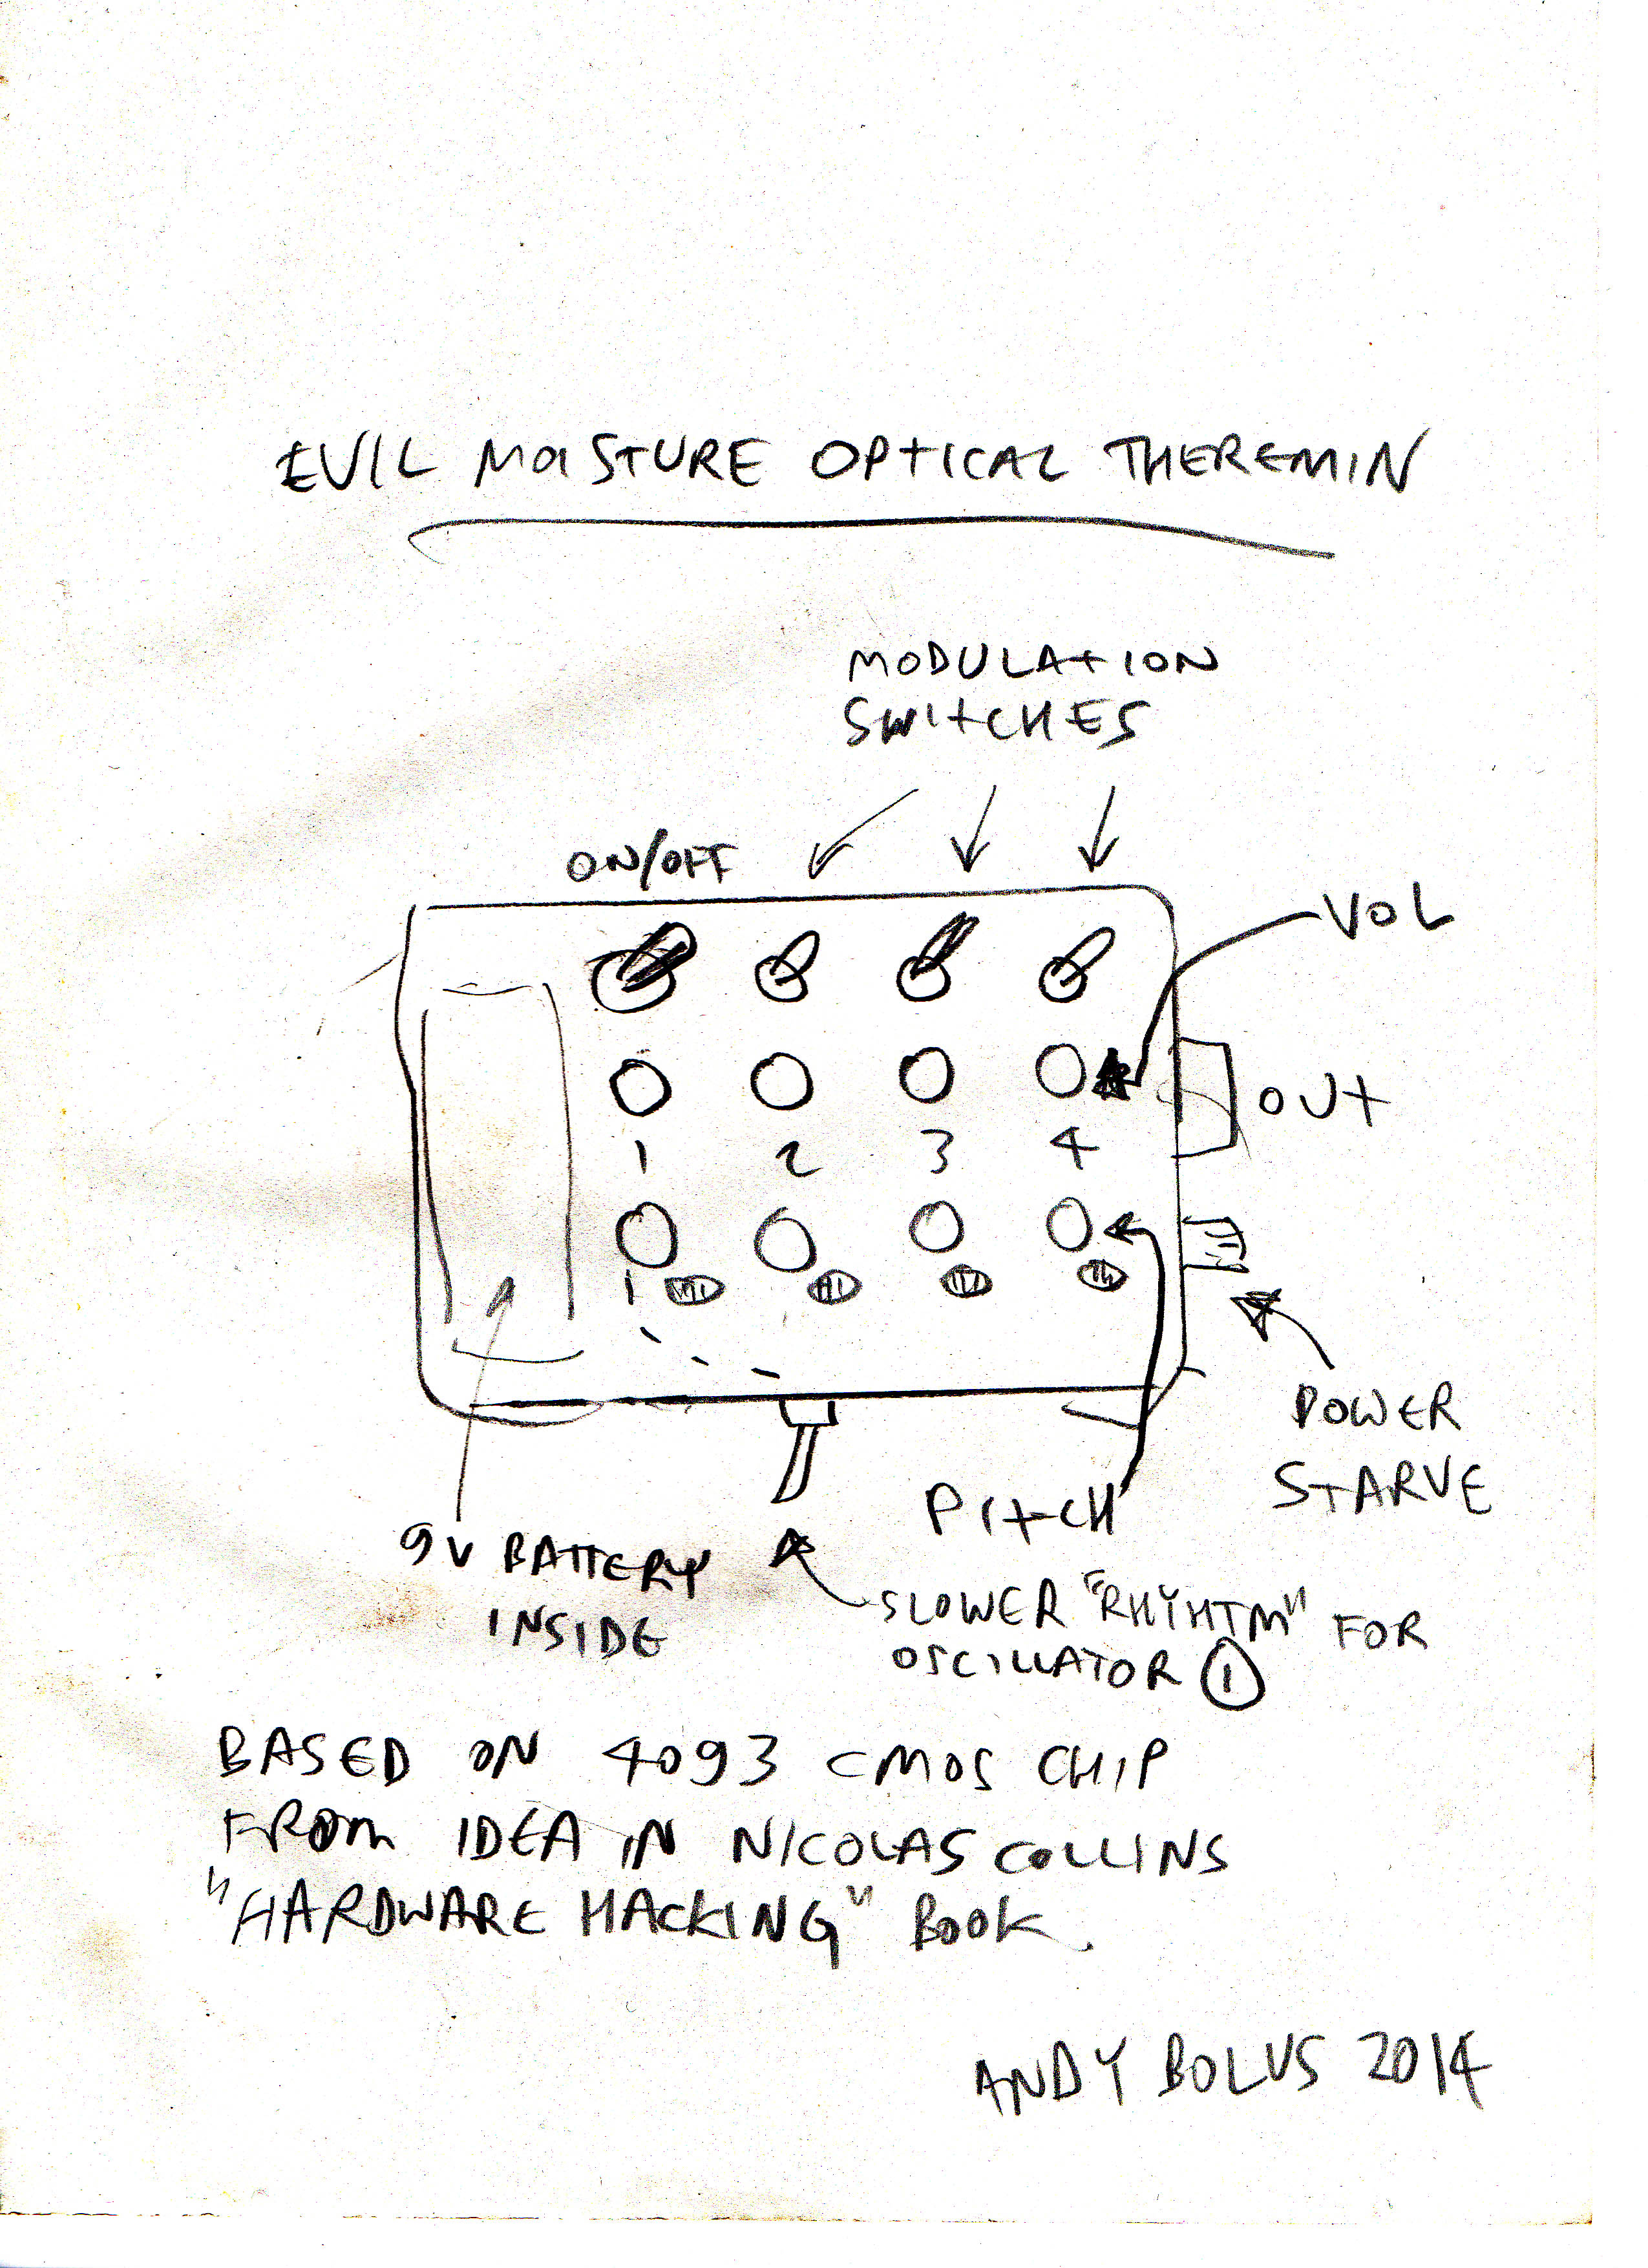 EVIL MOISTURE OPTICAL THEREMIN
MODULATION
SWITCHES
ON/OFF
VOL
OUT
1 2 3 4
1
POWER
STARVE
PITCH
9V BATTERY
INSIDE
SLOWER "RHYHTM" FOR
OSCILLATOR 1
BASED ON 4093 CMOS CHIP
FROM IDEA IN NICOLAS COLLINS
"HARDWARE HACKING" BOOK.
ANDY BOLUS 2014